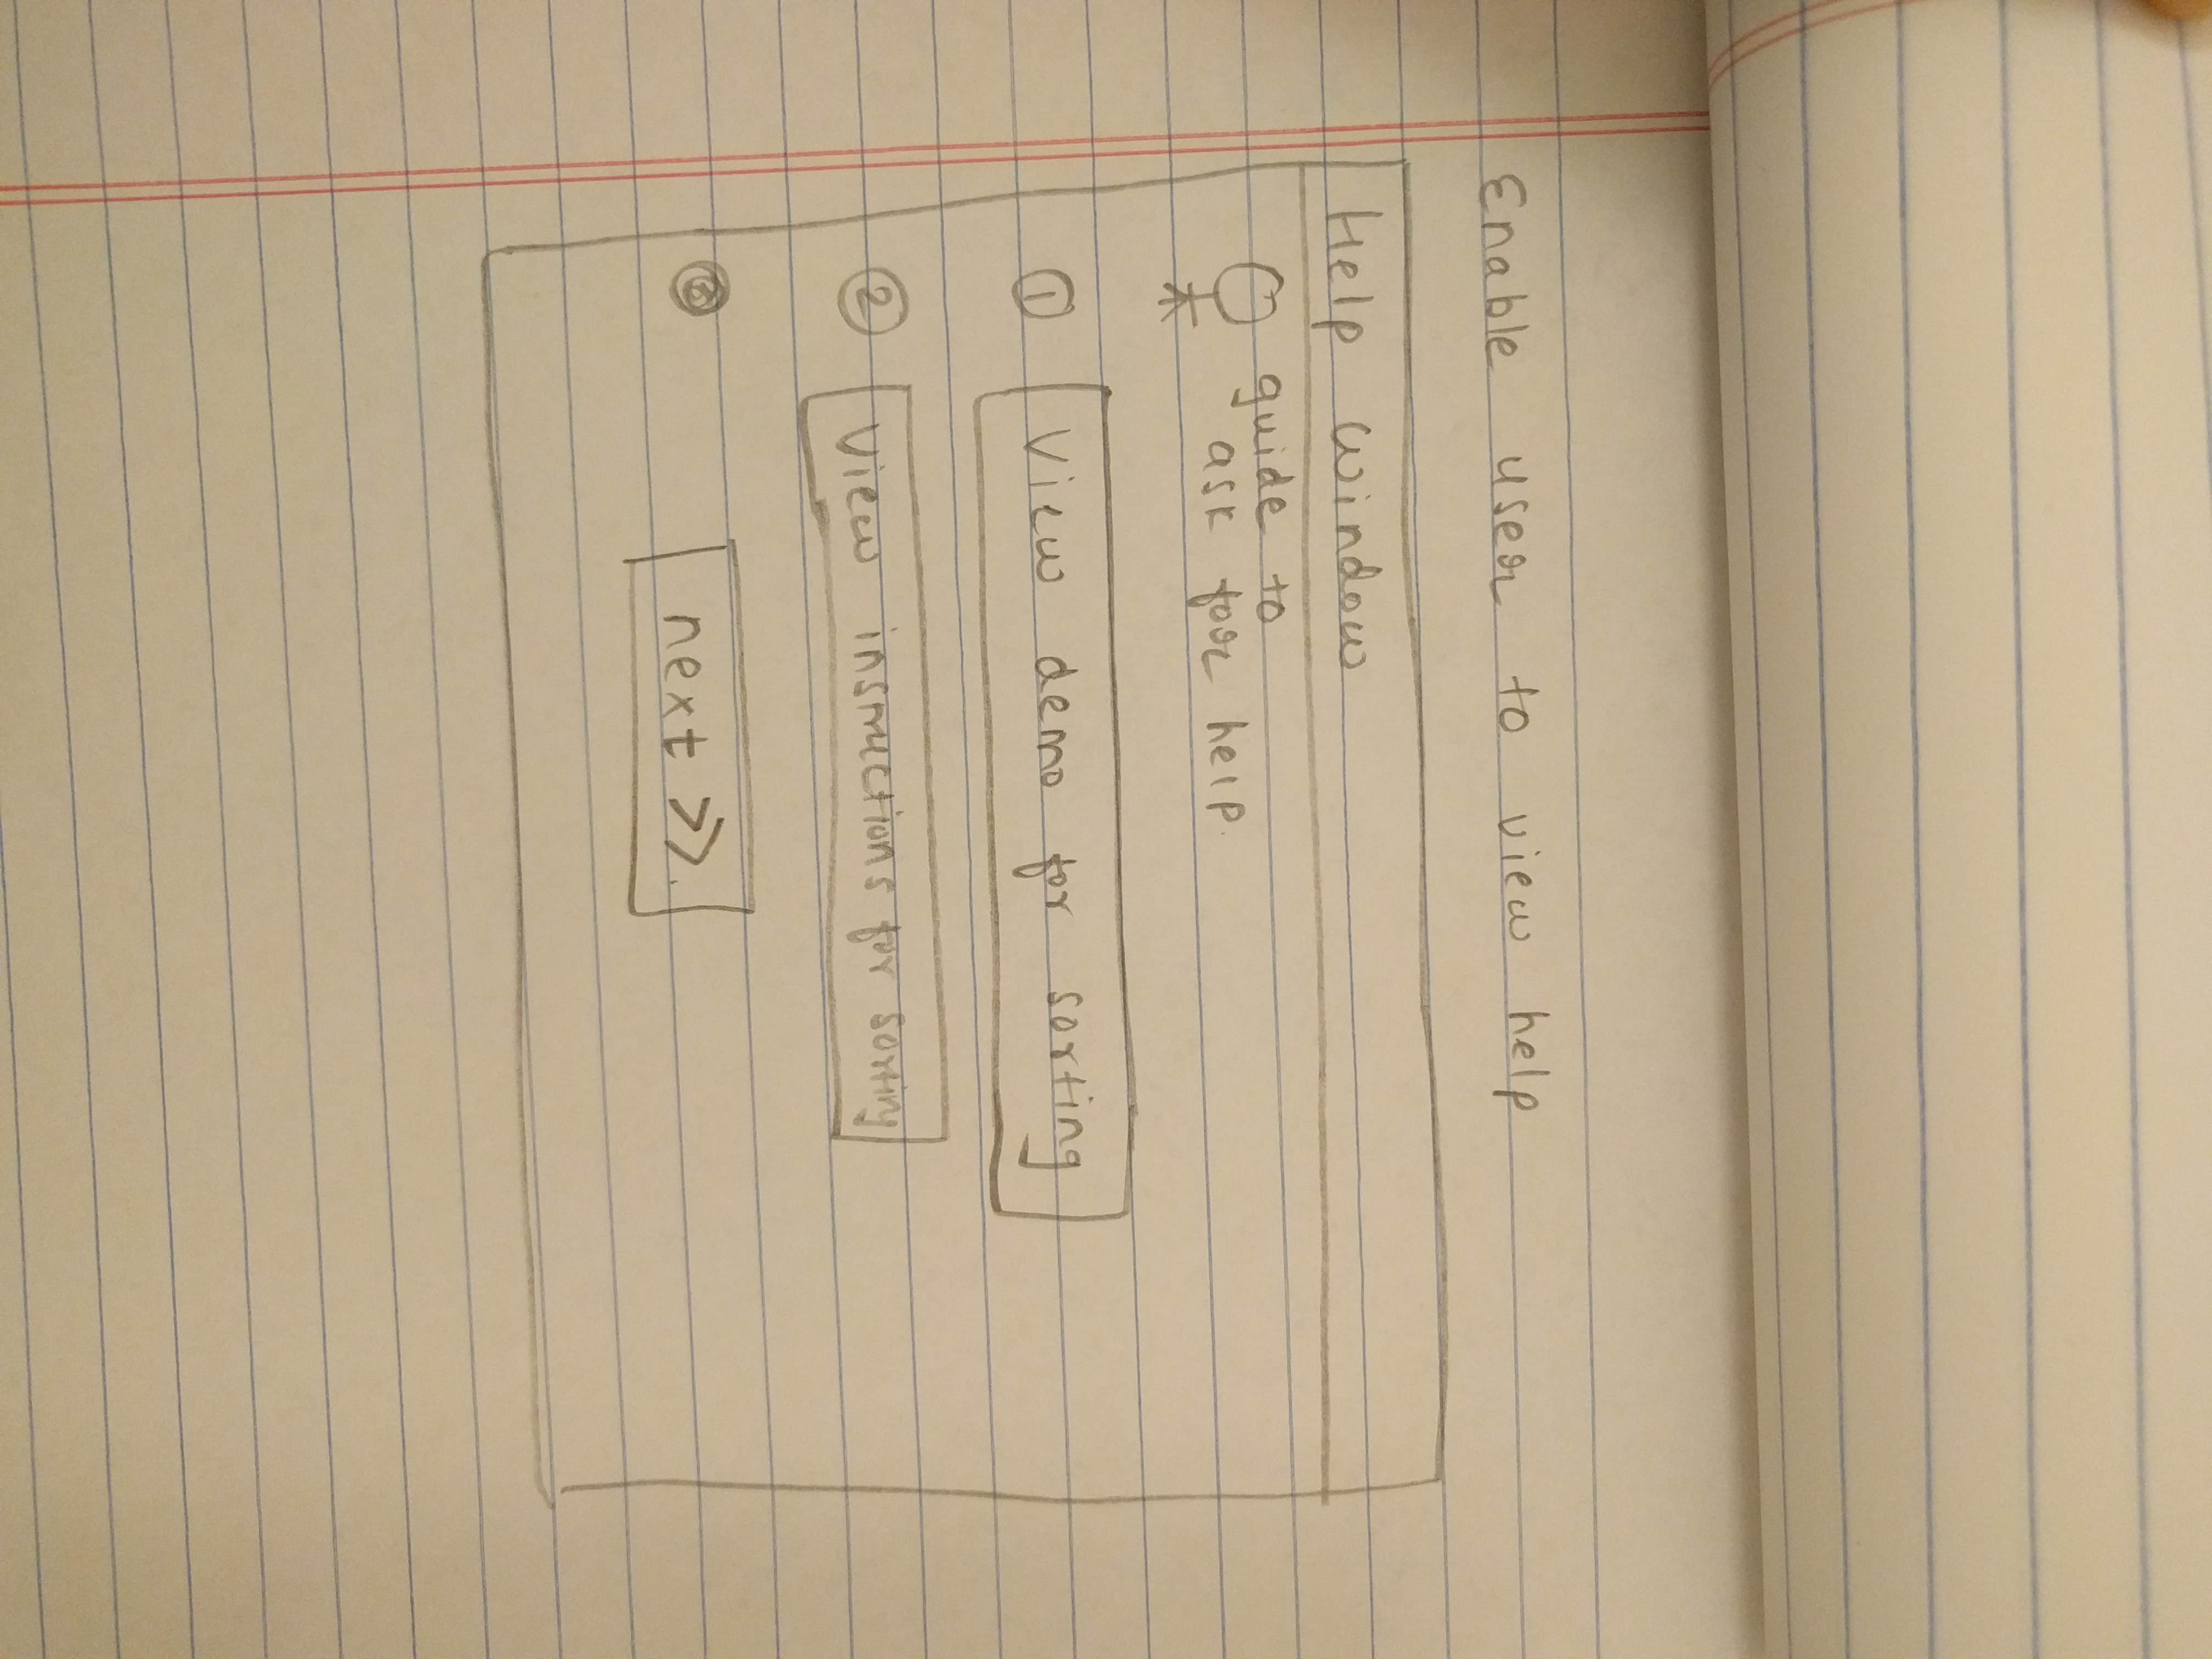 Enable user to view help
Help window
guide to
ask for help.
① View demo for sorting
② View instructions for sorting
next >>.